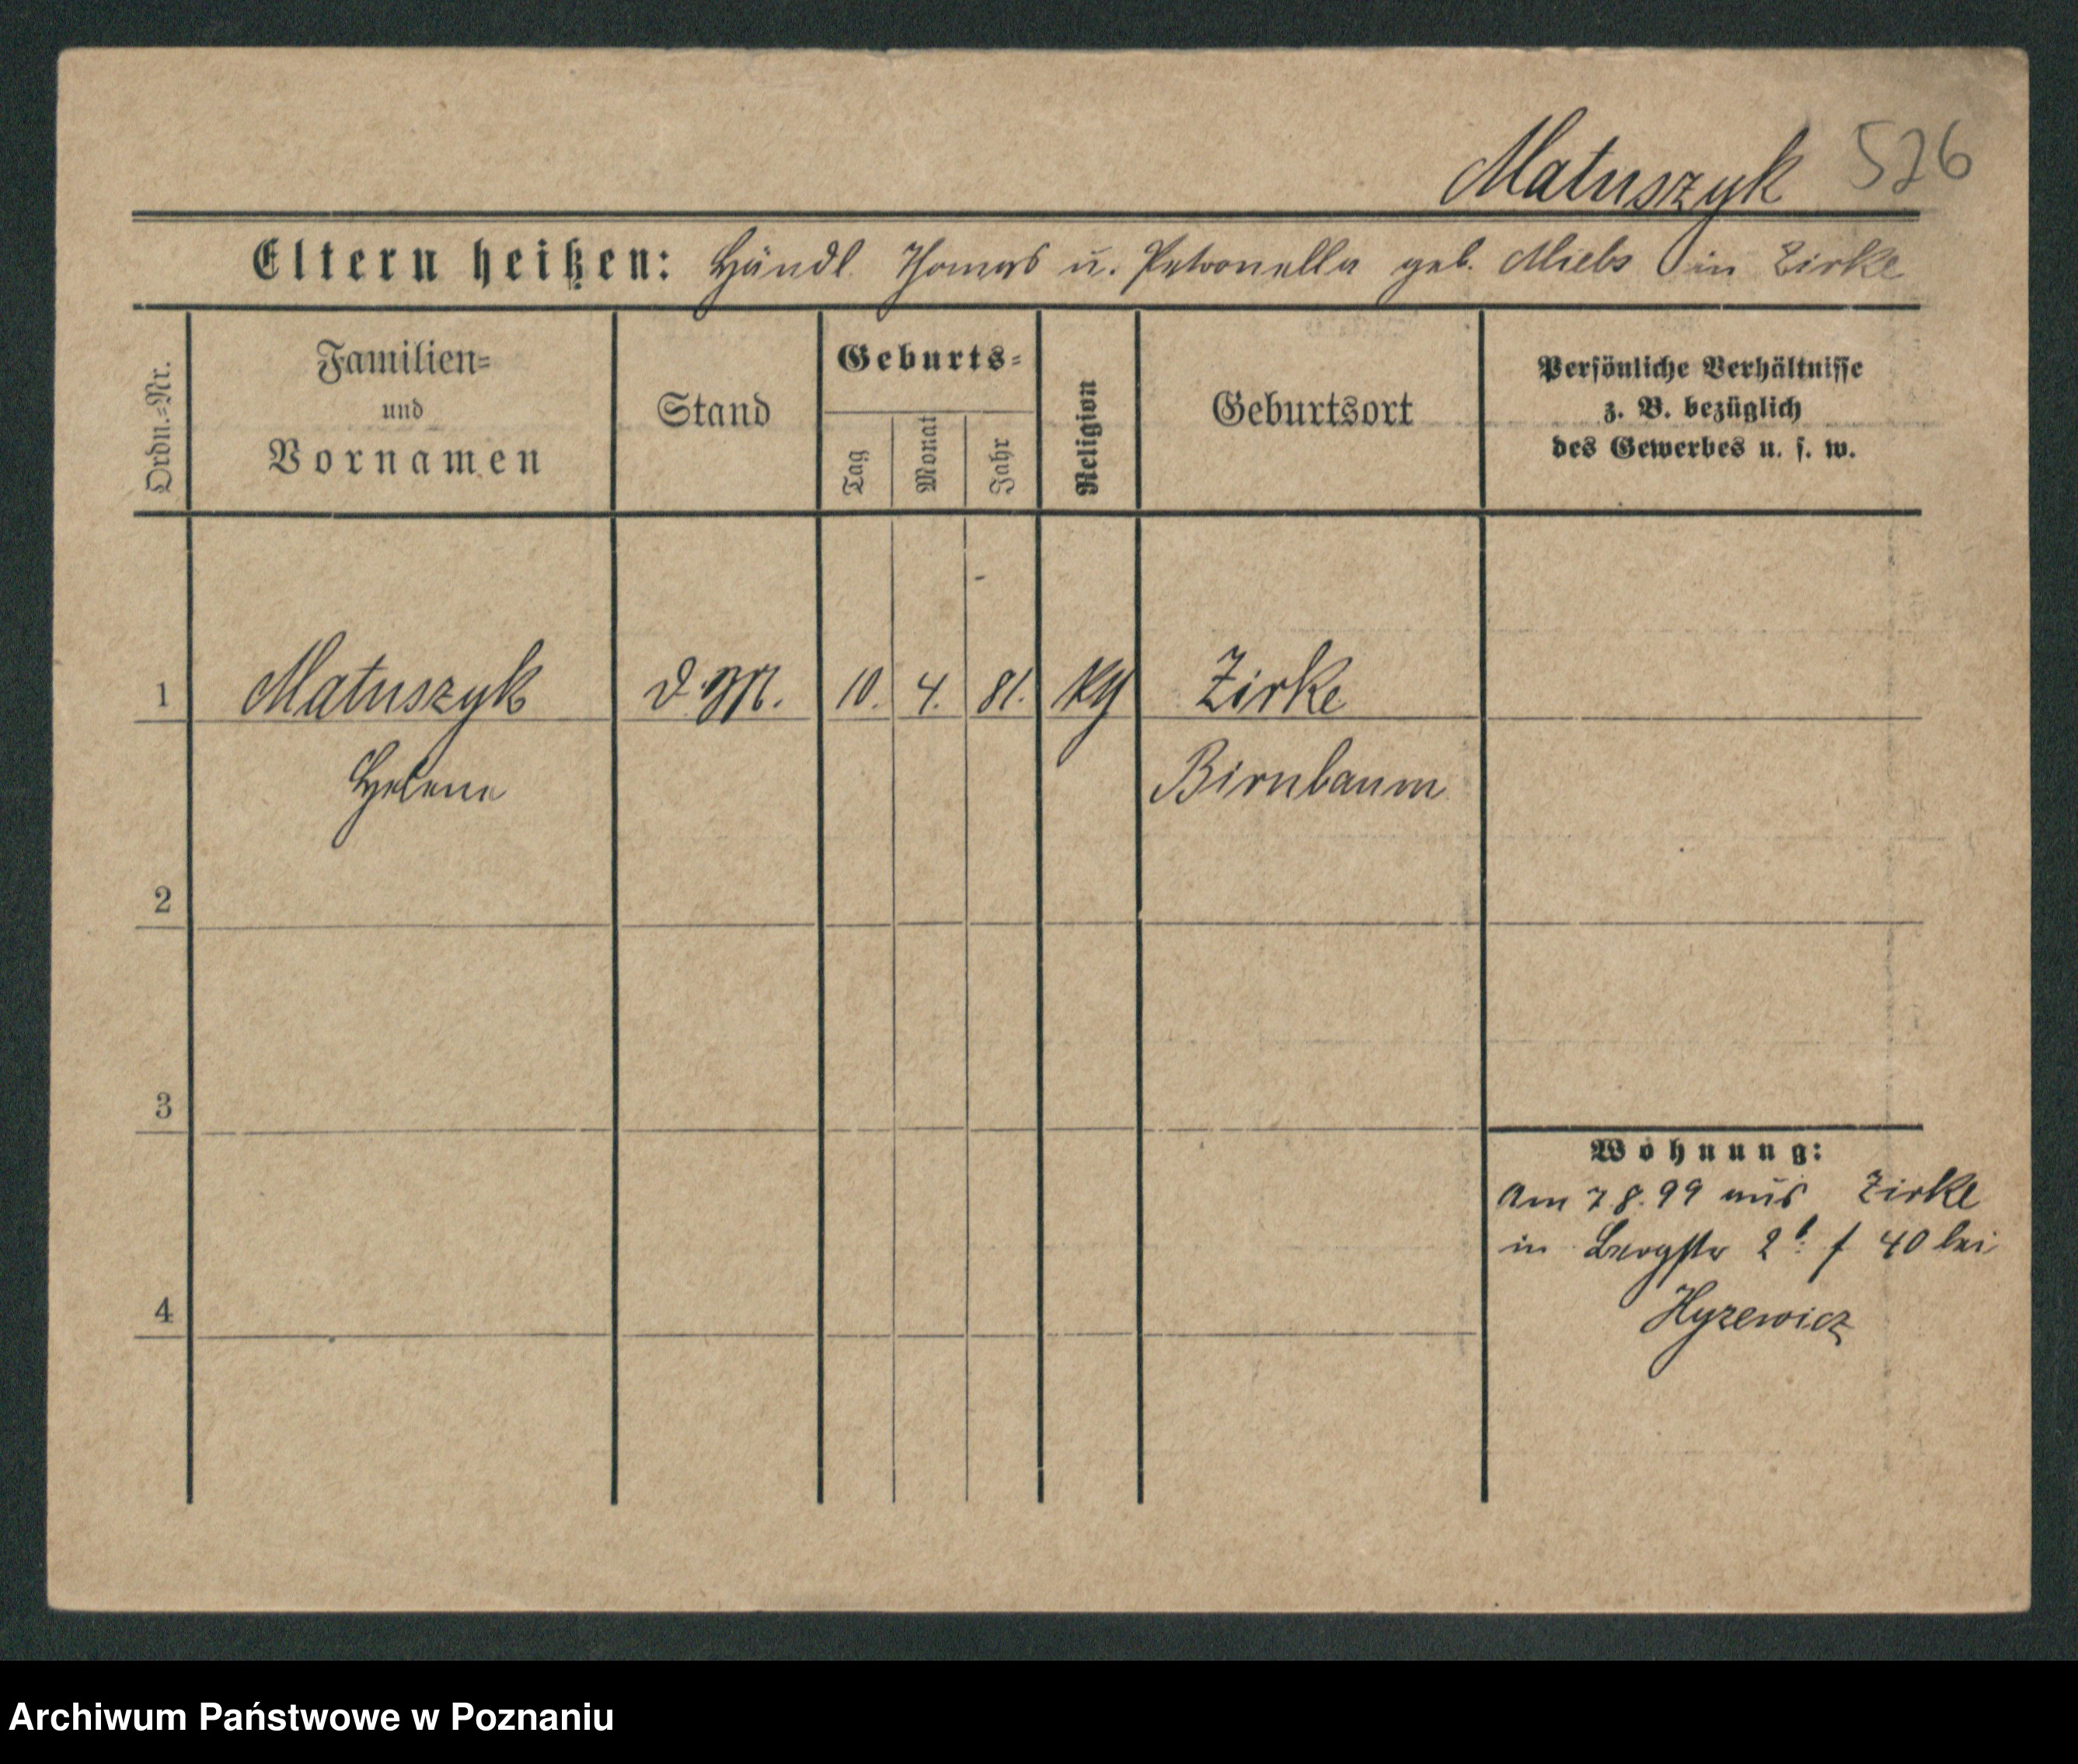 Matuszyk 526
Eltern heißen: Händl. Thomas u. Petronella geb. Miels in Zirke
Ordn.-Nr.
Familien-
und
Vornamen
Stand
Geburts-
Tag
Monat
Jahr
Religion
Geburtsort
Persönliche Verhältnisse
z. B. bezüglich
des Gewerbes u. s. w.
1 Matuszyk D. M. 10. 4. 81. Zirke
Helene Birnbaum
2
3
4
Wohnung:
Am 7.8.99 aus Zirke
in Bergstr 2b: f 40 bei
Hyzewicz
Archiwum Państwowe w Poznaniu